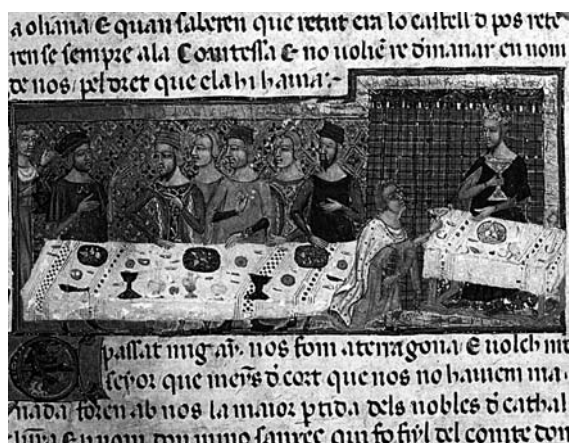 a oliana E quan saberen que retut era lo castell d pos rete
ren se sempre ala Comtessa E no uolie re dmanar en nom
de nos pel dret que ela hi hauia
passat mig ay nos fom a terragona E uolch nre
seyor que meys d cort que nos no hauem ma
nada foren ab nos la maior ptida dels nobles d cathal
E don nuno sanxec qui fo fiyl del comte don